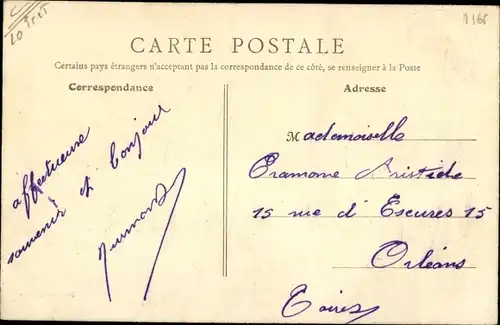 Loiret
CARTE POSTALE
Certains pays étrangers n'acceptant pas la correspondance de ce côté, se renseigner à la Poste
Correspondance
affectueuse
souvenir et bonjour
Adresse
Mademoiselle
Aristide
15 rue d'Escures 15
Orléans